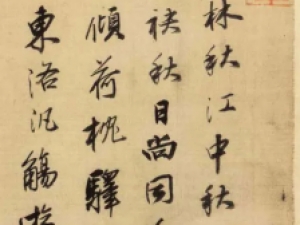 林秋江中秋
秋日尚同
傾荷枕驛
東洛汎觴